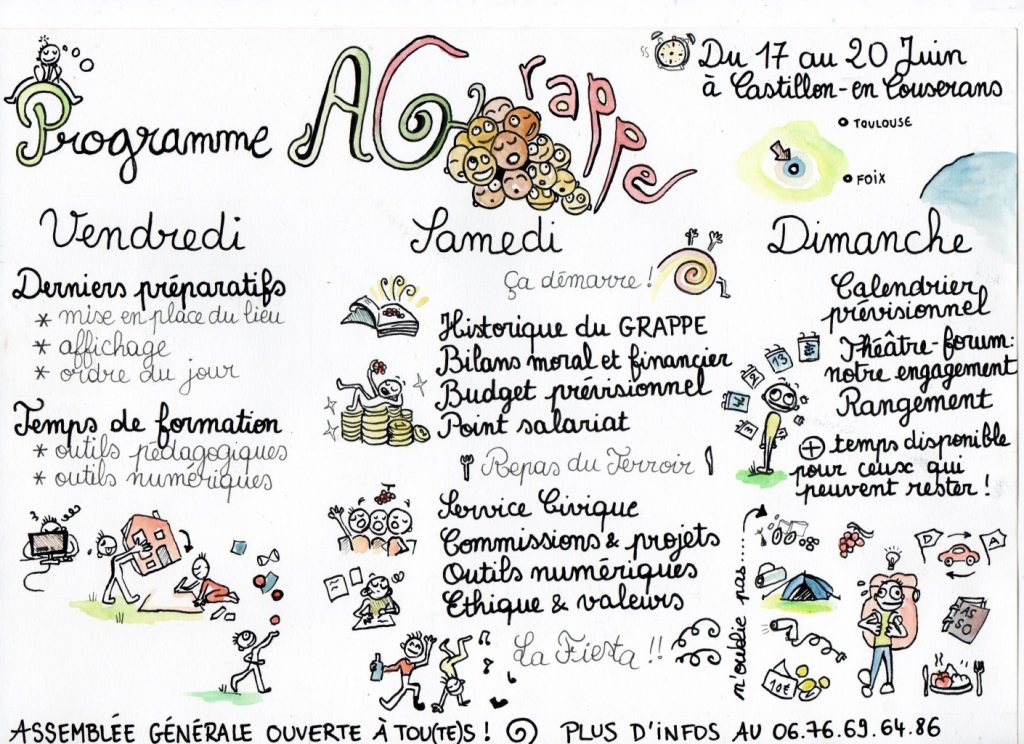 Programme
AGrappe
Du 17 au 20 Juin
à Castillon-en Couserans
TOULOUSE
FOIX
Vendredi
Derniers préparatifs
* mise en place du lieu
* affichage
* ordre du jour
Temps de formation
* outils pédagogiques
* outils numériques
Samedi
Ça démarre !
Historique du GRAPPE
Bilans moral et financier
Budget prévisionnel
Point salariat
Repas du Terroir
Service Civique
Commissions & projets
Outils numériques
Ethique & valeurs
La Fiesta !!
Dimanche
Calendrier
prévisionnel
Théâtre-forum:
notre engagement
Rangement
+ temps disponible
pour ceux qui
peuvent rester !
13
n'oublie pas......
D
A
ASSO
10€
ASSEMBLÉE GÉNÉRALE OUVERTE À TOU(TE)S ! PLUS D'INFOS AU 06.76.69.64.86